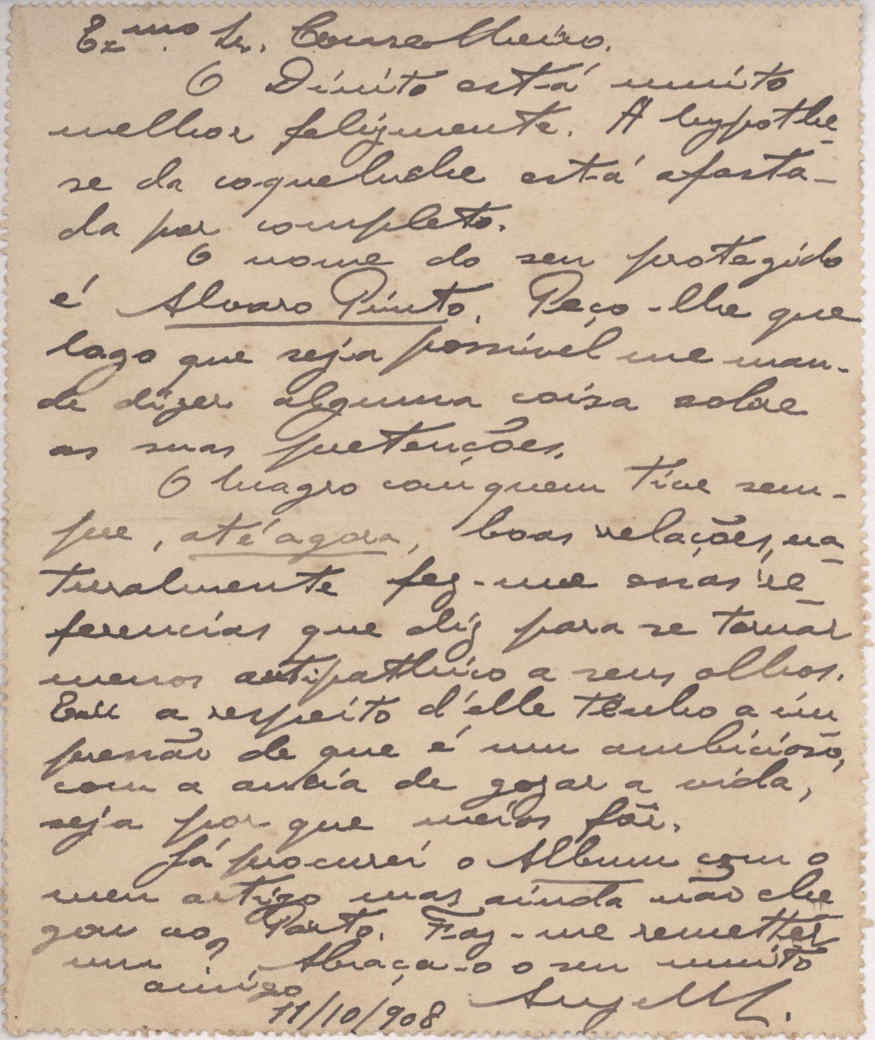 Ex.mo Sr. Conselheiro.
O Dinito está muito
melhor felizmente. A hypothe-
se da coqueluche está afasta-
da por completo.
O nome do seu protegido
é Alvaro Pinto. Peço-lhe que
logo que seja possivel me man-
de dizer alguma coisa sobre
as suas pretenções.
O Magro com quem tive sem-
pre, até agora, boas relações, na-
turalmente fez-me essas re-
ferencias que diz para se tornar
menos antipathico a seus olhos.
Eu a respeito d'elle tenho a im
pressão de que é um ambicioso,
com a ancia de gozar a vida,
seja por que meios fôr.
Já procurei o Album com o
meu artigo mas ainda não che
gou ao Porto. Faz-me remetter
um? Abraça-o o seu muito
amigo
11/10/908